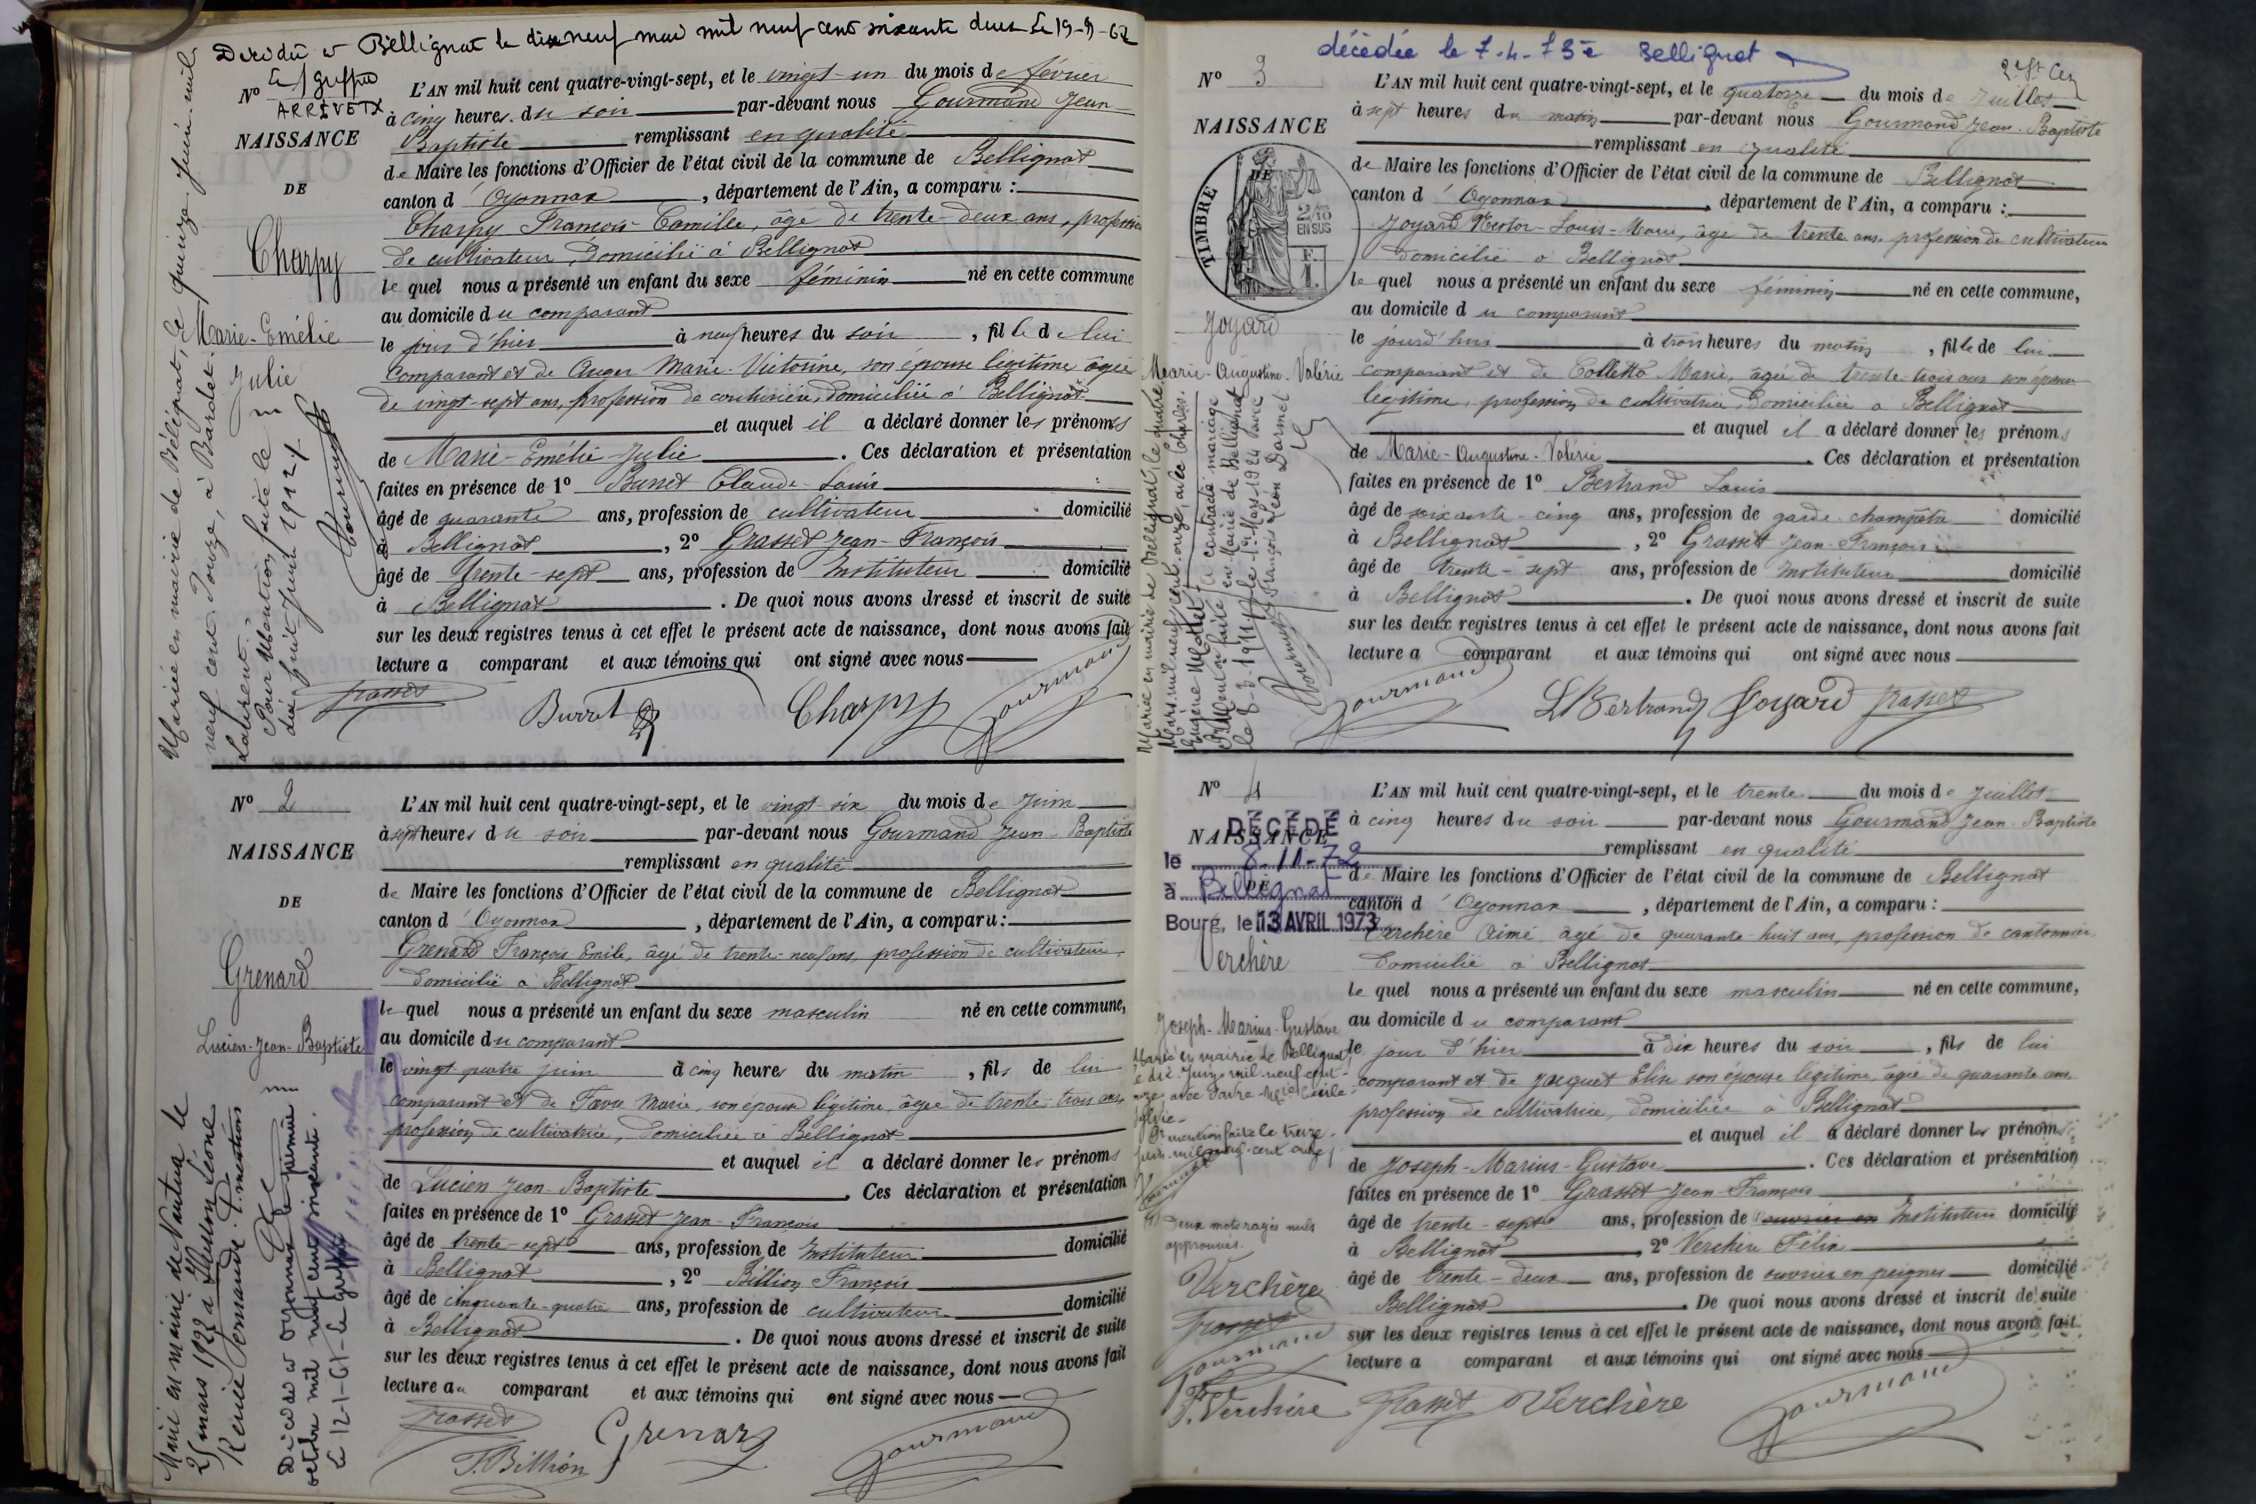 Bellignat le dix neuf mai mil neuf cent soixante deux Le 19-9-62
Nº 1
ARRIVETX
NAISSANCE
DE
Charpy
Marie-Emélie
Julie
L'AN mil huit cent quatre-vingt-sept, et le vingt-un du mois de février
à cinq heures du soir par-devant nous Gourmand Jean
Baptiste remplissant en qualité
de Maire les fonctions d'Officier de l'état civil de la commune de Bellignat
canton d'Oyonnax, département de l'Ain, a comparu :
Charpy François-Camille, âgé de trente-deux ans, profession
de cultivateur, domicilié à Bellignat
le quel nous a présenté un enfant du sexe féminin né en cette commune
au domicile du comparant
le jour d'hier à neuf heures du soir, fille de lui
comparant et de Auger Marie-Victorine, son épouse légitime âgée
de vingt-sept ans, profession de couturière, domiciliée à Bellignat
et auquel il a déclaré donner les prénoms
de Marie-Emélie-Julie. Ces déclaration et présentation
faites en présence de 1º Burret Claude-Louis
âgé de quarante ans, profession de cultivateur domicilié
à Bellignat, 2º Grasset Jean-François
âgé de trente-sept ans, profession de Instituteur domicilié
à Bellignat. De quoi nous avons dressé et inscrit de suite
sur les deux registres tenus à cet effet le présent acte de naissance, dont nous avons fait
lecture a comparant et aux témoins qui ont signé avec nous
Grasset Burret Charpy Gourmand
Mariée en mairie de Bélignat, le quinze Juin mil
neuf cent douze, à Bardet
Laurent.
Pour Mention faite le
dix huit Juin 1912
Nº 2
NAISSANCE
DE
Grenard
Lucien-Jean-Baptiste
L'AN mil huit cent quatre-vingt-sept, et le vingt-six du mois de Juin
à sept heures du soir par-devant nous Gourmand Jean-Baptiste
remplissant en qualité
de Maire les fonctions d'Officier de l'état civil de la commune de Bellignat
canton d'Oyonnax, département de l'Ain, a comparu :
Grenard François Emile, âgé de trente-neuf ans, profession de cultivateur,
domicilié à Bellignat
le quel nous a présenté un enfant du sexe masculin né en cette commune,
au domicile du comparant
le vingt quatre juin à cinq heures du matin, fils de lui
comparant et de Favre Marie, son épouse légitime, âgée de trente-trois ans
profession de cultivatrice, domiciliée à Bellignat
et auquel il a déclaré donner les prénoms
de Lucien Jean-Baptiste. Ces déclaration et présentation
faites en présence de 1º Grasset Jean-François
âgé de trente-sept ans, profession de Instituteur domicilié
à Bellignat, 2º Billion François
âgé de cinquante-quatre ans, profession de cultivateur domicilié
à Bellignat. De quoi nous avons dressé et inscrit de suite
sur les deux registres tenus à cet effet le présent acte de naissance, dont nous avons fait
lecture au comparant et aux témoins qui ont signé avec nous
Grasset Grenard Gourmand
F. Billion
Marié en mairie de Nantua le
25 mars 1922 à Léone
Renée Fernande. P. mention
Décédé à Oyonnax le premier
octobre mil neuf cent soixante.
Le 12-1-61-le greffier
décédée le 7-4-73 à Bellignat
Nº 3
NAISSANCE
DE
TIMBRE
2/10
EN SUS
F.
1.
Joyard
Marie-Augustine-Valérie
L'AN mil huit cent quatre-vingt-sept, et le quatorze du mois de Juillet
à sept heures du matin par-devant nous Gourmand Jean-Baptiste
remplissant en qualité
de Maire les fonctions d'Officier de l'état civil de la commune de Bellignat
canton d'Oyonnax, département de l'Ain, a comparu :
Joyard Nestor-Louis-Marie, âgé de trente ans, profession de cultivateur
domicilié à Bellignat
le quel nous a présenté un enfant du sexe féminin né en cette commune,
au domicile du comparant
le jourd'hui à trois heures du matin, fille de lui
comparant et de Colletta Marie, âgée de trente-trois ans son épouse
légitime, profession de cultivatrice, domiciliée à Bellignat
et auquel il a déclaré donner les prénoms
de Marie-Augustine-Valérie. Ces déclaration et présentation
faites en présence de 1º Bertrand Louis
âgé de soixante-cinq ans, profession de garde-champêtre domicilié
à Bellignat, 2º Grasset Jean-François
âgé de trente-sept ans, profession de Instituteur domicilié
à Bellignat. De quoi nous avons dressé et inscrit de suite
sur les deux registres tenus à cet effet le présent acte de naissance, dont nous avons fait
lecture a comparant et aux témoins qui ont signé avec nous
Gourmand L. Bertrand Joyard Grasset
Mariée en mairie de Bellignat, le quatre
Mars mil neuf cent onze, avec Charles
Eugène Mettet
A contracté mariage
en Mairie de Bellignat
le 1er Mars 1924 avec
François Léon Darmet
Nº 4
NAISSANCE
DE
DÉCÉDÉ
le 8-11-72
à Bellignat
Bourg, le 13 AVRIL 1973
Verchère
Joseph-Marius-Gustave
L'AN mil huit cent quatre-vingt-sept, et le trente du mois de Juillet
à cinq heures du soir par-devant nous Gourmand Jean-Baptiste
remplissant en qualité
de Maire les fonctions d'Officier de l'état civil de la commune de Bellignat
canton d'Oyonnax, département de l'Ain, a comparu :
Verchère Aimé âgé de quarante-huit ans, profession de cantonnier
domicilié à Bellignat
le quel nous a présenté un enfant du sexe masculin né en cette commune,
au domicile du comparant
le jour d'hier à dix heures du soir, fils de lui
comparant et de Jacquet Elise son épouse légitime, âgée de quarante ans
profession de cultivatrice, domiciliée à Bellignat
et auquel il a déclaré donner les prénoms
de Joseph-Marius-Gustave. Ces déclaration et présentation
faites en présence de 1º Grasset Jean-François
âgé de trente-sept ans, profession de ouvrier en Instituteur domicilié
à Bellignat, 2º Verchère Félix
âgé de trente-deux ans, profession de ouvrier en peignes domicilié
Bellignat. De quoi nous avons dressé et inscrit de suite
sur les deux registres tenus à cet effet le présent acte de naissance, dont nous avons fait
lecture a comparant et aux témoins qui ont signé avec nous
Marié en mairie de Bellignat
le dix Juin mil neuf cent
onze avec Favre
Pr mention faite le treize
juin mil neuf cent onze
Deux mots rayés nuls
approuvés.
Verchère
Grasset
Gourmand
F. Verchère Grasset Verchère Gourmand